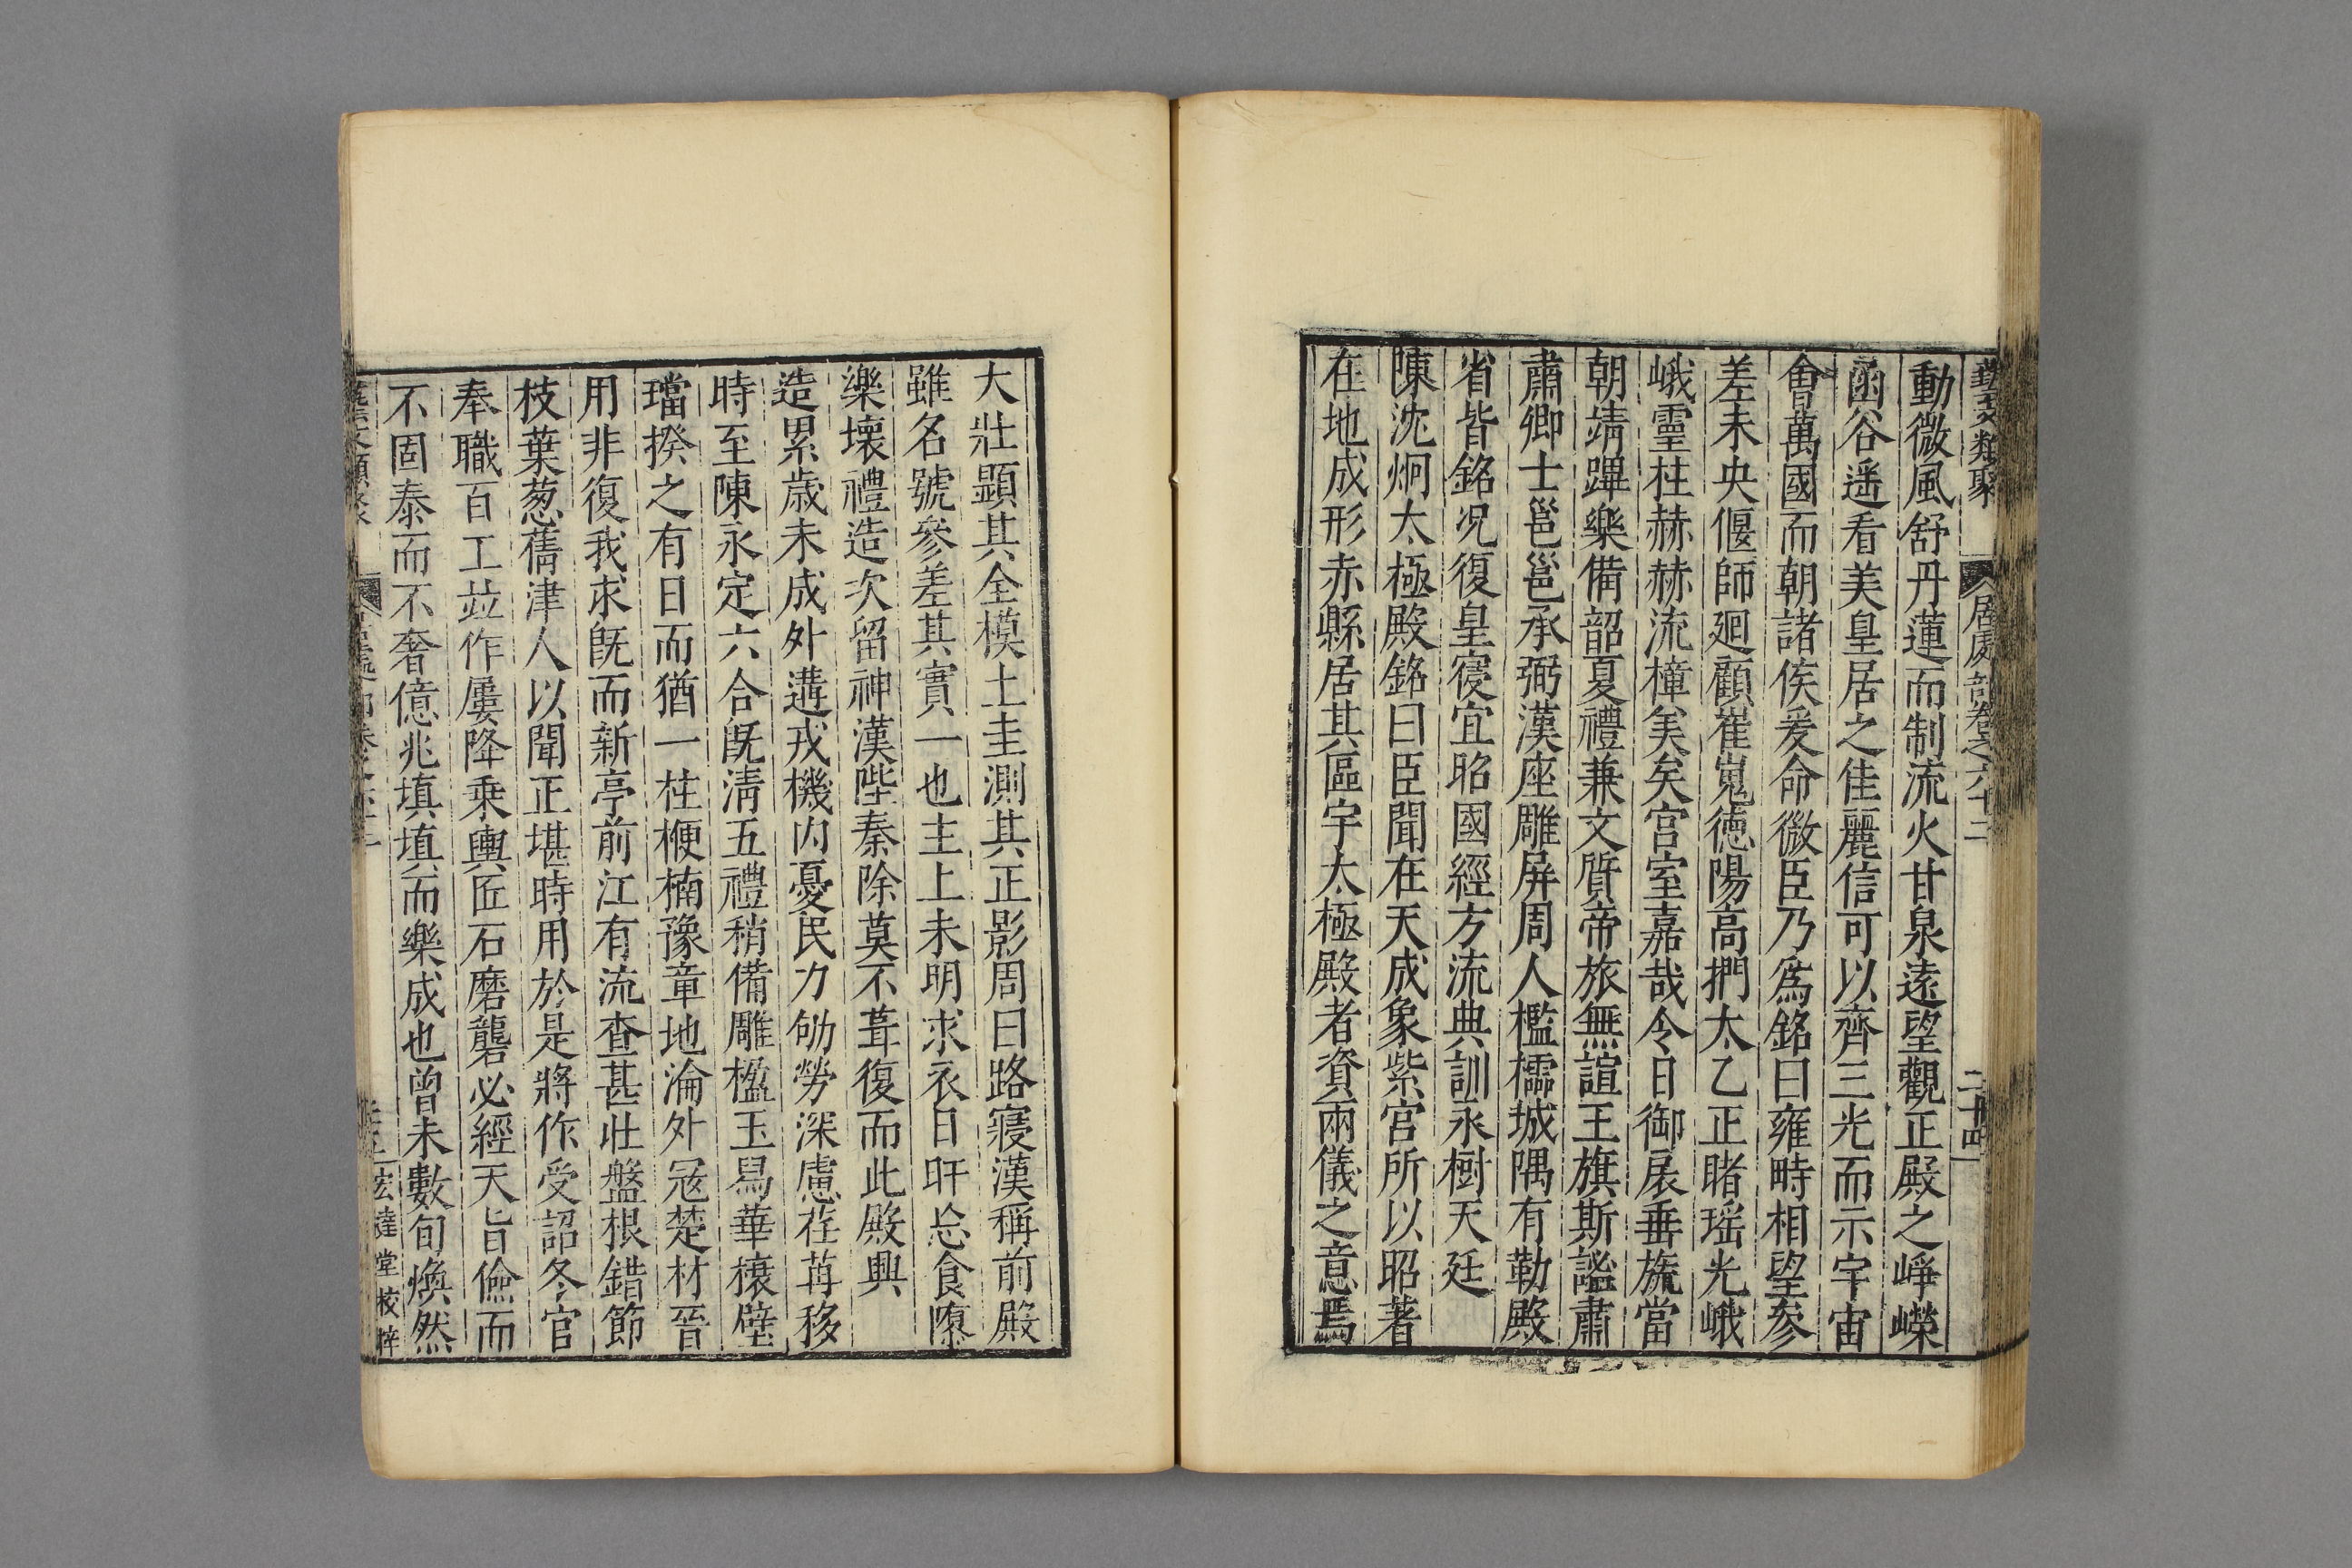 藝文類聚 居處部卷之六十二 二十四
動微風舒丹蓮而制流火甘泉遠望觀正殿之崢嶸
函谷遥看美皇居之佳麗信可以齊三光而示宇宙
會萬國而朝諸侯爰命微臣乃爲銘曰雍畤相望參
差未央偃師廻顧崔嵬徳陽高捫太乙正睹瑶光峨
峨靈柱赫赫流橦美矣宫室嘉哉令日御扆垂旒當
朝靖蹕樂備韶夏禮兼文質帝旅無諠王旗斯謐肅
肅卿士邕邕承弼漢座雕屏周人檻櫺城隅有勒殿
省皆銘况復皇寑宜昭國經方流典訓永樹天廷
陳沈炯太極殿銘曰臣聞在天成象紫宫所以昭著
在地成形赤縣居其區宇太極殿者資兩儀之意焉
大壯顯其全模土圭測其正影周曰路寢漢稱前殿
雖名號參差其實一也主上未明求衣日旰忘食隱
樂壊禮造次留神漢陛秦除莫不葺復而此殿興
造累歳未成外遘戎機内憂民力劬勞深慮荏苒移
時至陳永定六合旣清五禮稍備雕楹玉舄華榱璧
璫揆之有日而猶一柱楩楠豫章地淪外冦楚材晉
用非復我求旣而新亭前江有流查甚壯盤根錯節
枝葉葱蒨津人以聞正堪時用於是將作受詔冬官
奉職百工竝作屢降乗輿匠石磨礱必經天旨儉而
不固泰而不奢億兆填填而樂成也曾未數旬煥然
宏達堂校梓